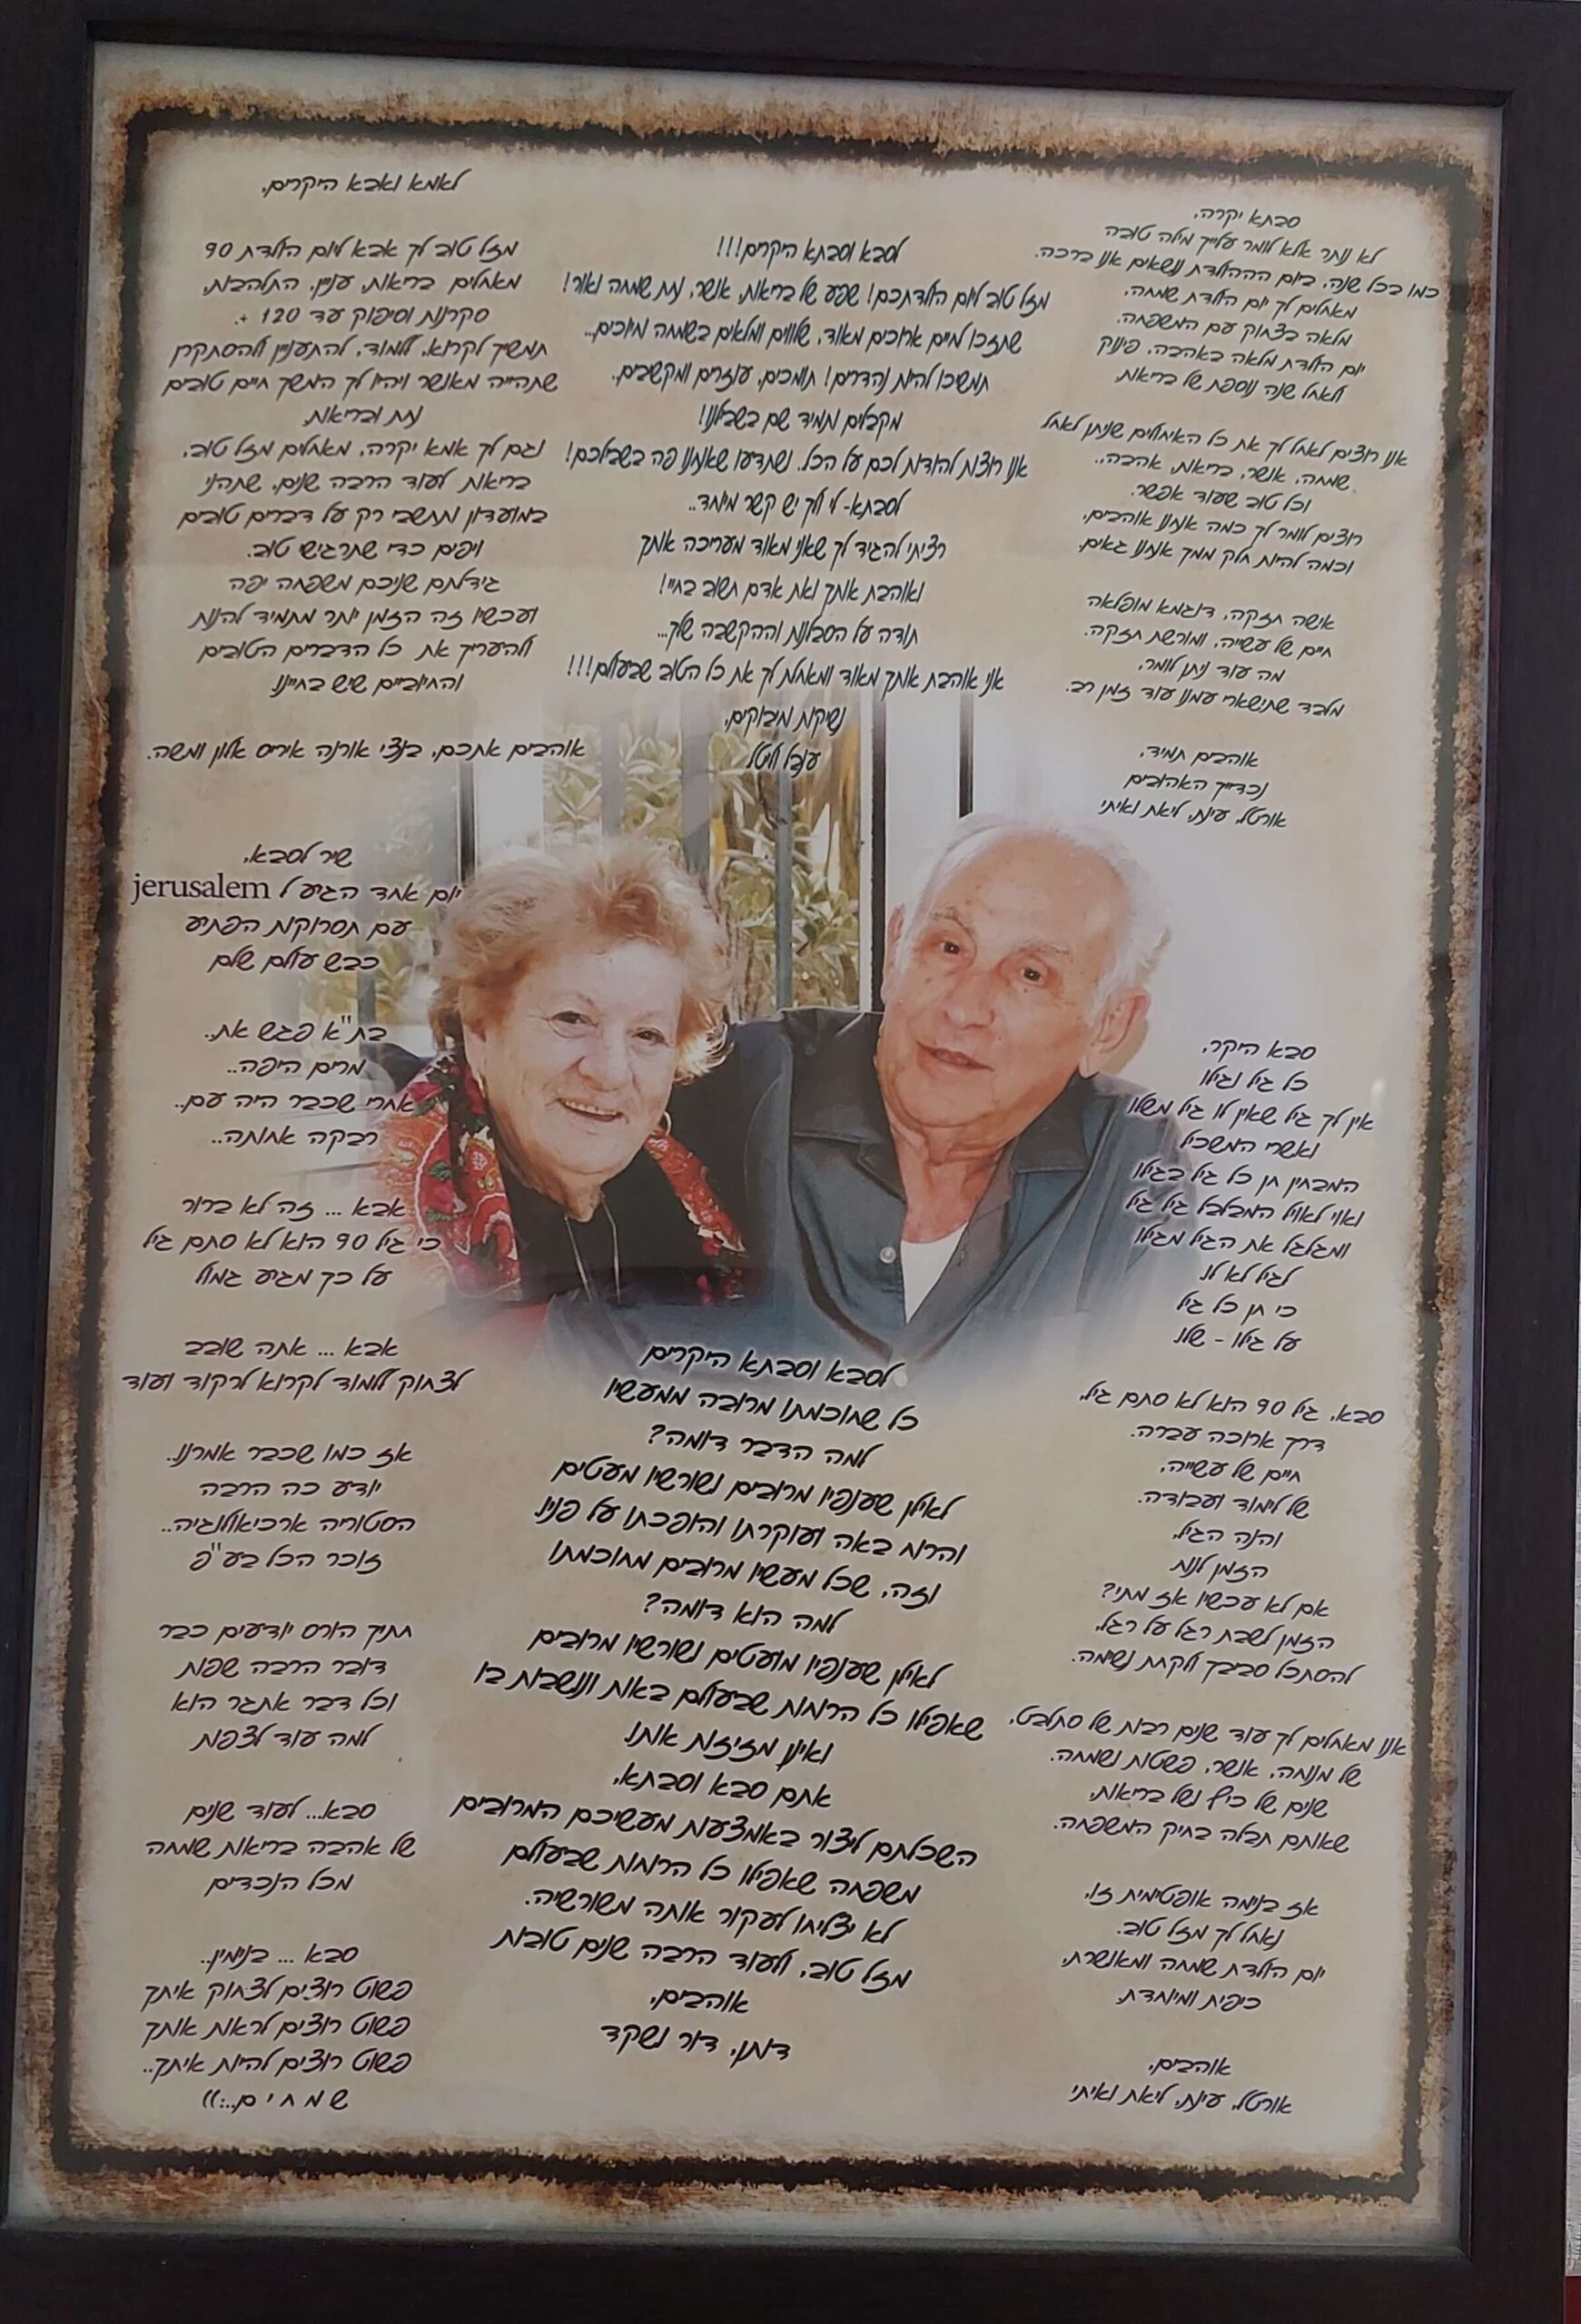 סבתא יקרה,
לא נותר אלא לומר עלייך מילה טובה
כמו בכל שנה, ביום ההולדת נושאים אנו ברכה.
מאחלים לך יום הולדת שמחה,
מלאה בצחוק עם המשפחה.
יום הולדת מלאה באהבה, פינוק
ולאחל שנה נוספת של בריאות.
אנו רוצים לאחל לך את כל האיחולים שניתן לאחל
שמחה, אושר, בריאות, אהבה,.
וכל טוב שעוד אפשר.
רוצים לומר לך כמה אנחנו אוהבים,
וכמה להיות חלק ממך אנחנו גאים.
אישה חזקה, דוגמא מופלאה
חיים של עשייה, ומורשת חזקה.
מה עוד ניתן לומר,
מלבד שתישארי עמנו עוד זמן רב.
אוהבים תמיד,
נכדייך האהובים
אורטל, עינת, ליאת ואיתי
סבא היקר,
כל גיל וגילו
אין לך גיל שאין לו גיל משלו
ואשרי המשכיל
המבחין חן כל גיל בגילו
ואוי לאויל המבלבל גיל גיל
ומגלגל את הגיל מגילו
לגיל לא לו
כי חן כל גיל
על גילו - שלו
סבא, גיל 90 הוא לא סתם גיל,
דרך ארוכה עברה.
חיים של עשייה,
של לימוד ועבודה.
והנה הגיל,
הזמן לנוח
אם לא עכשיו אז מתי?
הזמן לשבת רגל על רגל,
להסתכל סביבך ולקחת נשימה.
אנו מאחלים לך עוד שנים רבות של סתלבט,
של מנוחה, אושר, פשטות ושמחה.
שנים של כיף ושל בריאות,
שאותם תבלה בחיק המשפחה.
אז בנימה אופטימית זו,
נאחל לך מזל טוב.
יום הולדת שמחה ומאושרת,
כיפית ומיוחדת.
אוהבים,
אורטל, עינת, ליאת ואיתי
לסבא וסבתא היקרים!!!
מזל טוב ליום הולדתכם! שפע של בריאות, אושר, נחת שמחה ואור!
שתזכו לחיים ארוכים מאוד, שלווים ומלאים בשמחה וחיוכים...
תמשיכו להיות נהדרים! תומכים, עוזרים ומקשיבים.
מקבלים ותמיד שם בשבילנו!
אנו רוצות להודות לכם על הכל. ושתדעו שאנחנו פה בשבילכם!
לסבתא- לי ולך יש קשר מיוחד..
רציתי להגיד לך שאני מאוד מעריכה אותך
ואוהבת אותך ואת אדם חשוב בחיי!
תודה על הסבלנות וההקשבה שלך...
אני אוהבת אותך מאוד ומאחלת לך את כל הטוב שבעולם!!!
נשיקות וחיבוקים,
ענבל וליטל
לסבא וסבתא היקרים
כל שחוכמתו מרובה ממעשיו
למה הדבר דומה?
לאילן שענפיו מרובים ושורשיו מעטים
והרוח באה ועוקרתו והופכתו על פניו.
וזה, שכל מעשיו מרובים מחוכמתו
למה הוא דומה?
לאילן שענפיו מועטים ושורשיו מרובים
שאפילו כל הרוחות שבעולם באות ונושבות בו
ואינן מזיזות אותו.
אתם סבא וסבתא,
השכלתם ליצור באמצעות מעשיכם המרובים
משפחה שאפילו כל הרוחות שבעולם
לא יצליחו לעקור אותה משורשיה.
מזל טוב, ולעוד הרבה שנים טובות
אוהבים,
דותן, דור ושקד
לאמא ואבא היקרים,
מזל טוב לך אבא ליום הולדת 90
מאחלים בריאות, עניין, התלהבות,
סקרנות וסיפוק עד 120 +.
תמשיך לקרוא, ללמוד, להתעניין ולהסתקרן
שתהייה מאושר ויהיו לך המשך חיים טובים
נחת ובריאות.
וגם לך אמא יקרה, מאחלים מזל טוב,
בריאות לעוד הרבה שנים, שתהני
במועדון ותחשבי רק על דברים טובים
ויפים כדי שתרגיש טוב.
גידלתם שניכם משפחה יפה
ועכשיו זה הזמן יותר מתמיד להנות
ולהעריך את כל הדברים הטובים
והחיוביים שיש בחיינו
אוהבים אתכם, בנצי אורנה איריס אלון ומשה.
שיר לסבא,
יום אחד הגיע ל jerusalem
עם תסרוקות הפתיע
כבש עולם שלם
בת"א פגש את..
מרים היפה..
אחרי שכבר היה עם..
רבקה אחותה..
אבא ... זה לא ברור
כי גיל 90 הוא לא סתם גיל
על כך מגיע גמול
אבא ... אתה שובב
לצחוק ללמוד לקרוא לרקוד ועוד
אז כמו שכבר אמרנו..
יודע כה הרבה
הסטוריה ארכיאולוגיה..
זוכר הכל בע"פ
חתיך הורס יודעים כבר
דובר הרבה שפות
וכל דבר אתגר הוא
למה עוד לצפות
סבא... לעוד שנים
של אהבה בריאות שמחה
מכל הנכדים
סבא ... בנימין..
פשוט רוצים לצחוק איתך
פשוט רוצים לראות אותך
פשוט רוצים להיות איתך..
ש מ ח י ם..:))